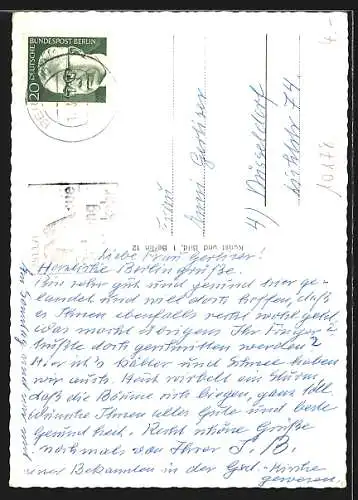 DEUTSCHE BUNDESPOST BERLIN
20
4.-
10178
Frau
Gerliser
4) Düsseldorf
74.
Kunst und Bild, 1 Berlin 12
Liebe Frau Gerliser!
Herzliche Berlin Grüße.
Bin sehr gut und gesund hier ge-
landet und will doch hoffen, daß
es Ihnen ebenfalls recht wohl geht
was macht übrigens Ihr Finger?
mußte doch geschnitten werden?
Hier ist's kälter und Schnee haben
wir auch. Heut wirbelt ein Sturm
daß die Bäume sich biegen, ganz toll
wünsche Ihnen alles Gute und beste
Gesundheit. Recht schöne Grüße
nochmals von Ihrer J. B.
einer Bekannten in der Gsd.-Kirche
gewesen.
Am Sonntag sind wir mit